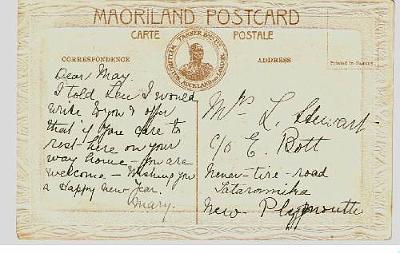 MAORILAND POSTCARD
CARTE POSTALE
CORRESPONDENCE
ADDRESS
Printed in Saxony
Dear May.
I told Lew I would
write to you & offer
that if you care to
rest here on your
way home – you are
welcome – Wishing you
a Happy New Year.
Mary.
Mrs L. Stewart.
c/o E. Bott
Never-tire-road
Tataraimaka
New Plymouth